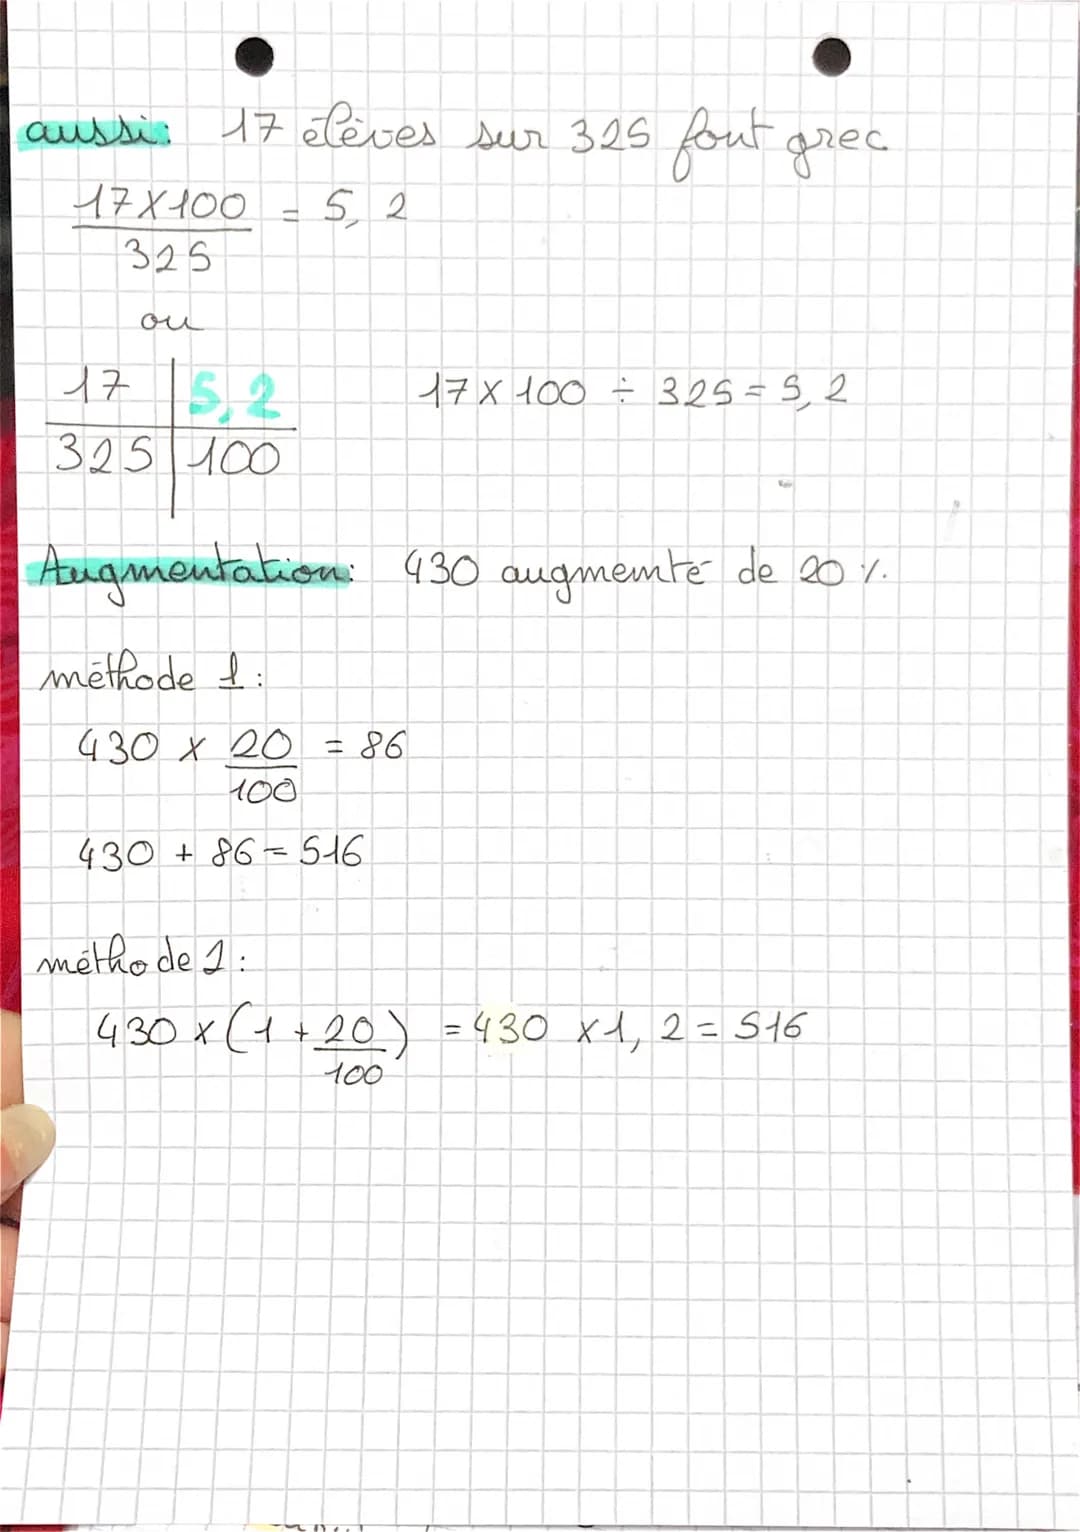 aussi: 17 élèves sur 325 font grec
17 x 100 = 5,2
325
ou
17 | 5,2 17 x 100 ÷ 325 = 5,2
325 | 100
Augmentation: 430 augmenté de 20 %.
méthode 1:
430 x 20 = 86
100
430 + 86 = 516
méthode 2:
430 x (1 + 20) = 430 x 1,2 = 516
100